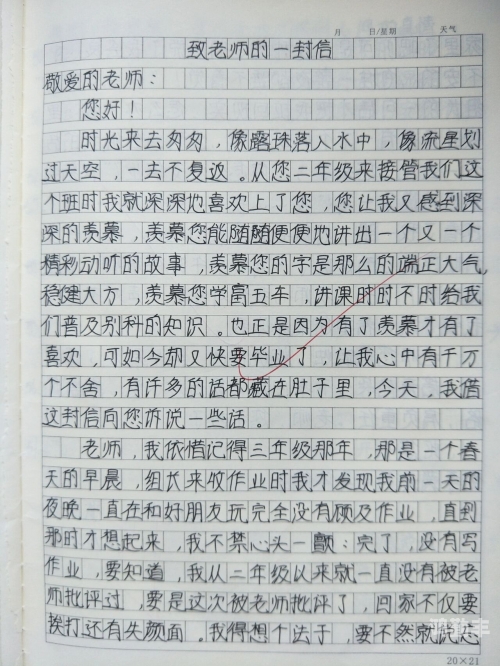 月 日/星期 天气
致老师的一封信
敬爱的老师：
您好！
时光来去匆匆，像露珠落入水中，像流星划
过天空，一去不复返。从您二年级来接管我们这
个班时我就深深地喜欢上了您，您让我又感到深
深的羡慕，羡慕您能随随便便地讲出一个又一个
精彩动听的故事，羡慕您的字是那么的端正大气，
稳健大方，羡慕您学富五车，讲课时时不时给我
们普及别科的知识。也正是因为有了羡慕才有了
喜欢，可如今却又快要毕业了，让我心中有千万
个不舍，有许多的话都藏在肚子里，今天，我借
这封信向您诉说一些话。
老师，我依惜记得三年级那年，那是一个春
天的早晨，组长来收作业时我才发现我前一天的
夜晚一直在和好朋友玩完全没有顾及作业，直到
那时才想起来，我不禁心头一颤：完了，没有写
作业，要知道，我从二年级以来就一直没有被老
师批评过，要是这次被老师批评了，回家不仅要
挨打还有失颜面。我得想个法子，要不然就
20×21